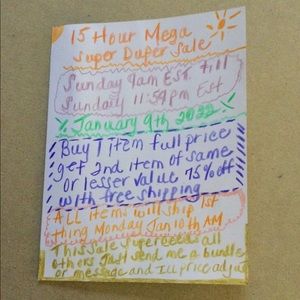 15 Hour Mega
Super Duper Sale
Sunday 9am EST till
Sunday 11:59pm Est
January 9th 2022
Buy 1 item full price
get 2nd item of same
or lesser value 75% off
with free shipping
All items will ship 1st
thing Monday Jan 10th AM
This sale supercedes all
others Just send me a bundle
or message and I'll price adjus